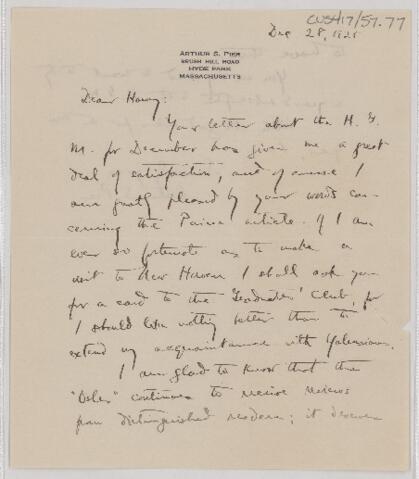 CUS417/57.77
Dec 28, 1925
ARTHUR S. PIER
BRUSH HILL ROAD
HYDE PARK
MASSACHUSETTS
Dear Harvey:
Your letter about the H. G.
M. for December has given me a great
deal of satisfaction, and of course I
am greatly pleased by your words con-
cerning the Paine article. If I am
ever so fortunate as to make a
visit to New Haven I shall ask you
for a card to the Graduates' Club, for
I should like nothing better than to
extend my acquaintance with Yalensians.
I am glad to know that the
"Osler" continues to receive reviews
from distinguished readers; it deserves